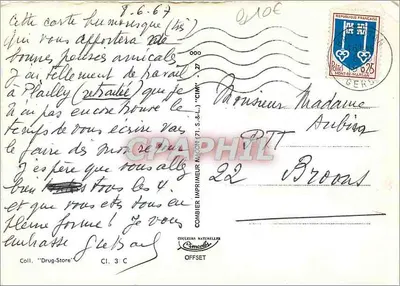 8.6.67
Cette carte humoresque (bis)
qui vous apportera de
bonnes pensées amicales
J'ai tellement de travail
à Plailly (retraitée) que je
n'ai pas encore trouvé le
temps de vous écrire vais
le faire dès mon retour
J'espère que vous allez
bien tous les 4.
et que vous êtes en
pleine forme! Je vous
embrasse
Coll. "Drug-Store" Cl. 3 C
COMBIER IMPRIMEUR MACON (71. S.-&-L.) "CIM"
COULEURS NATURELLES
Cimcolor
OFFSET
REPUBLIQUE FRANÇAISE
0,25
MONT-DE-MARSAN
GERS
Monsieur Madame
Aubin
PTT
22 Broons
CPAPHIL